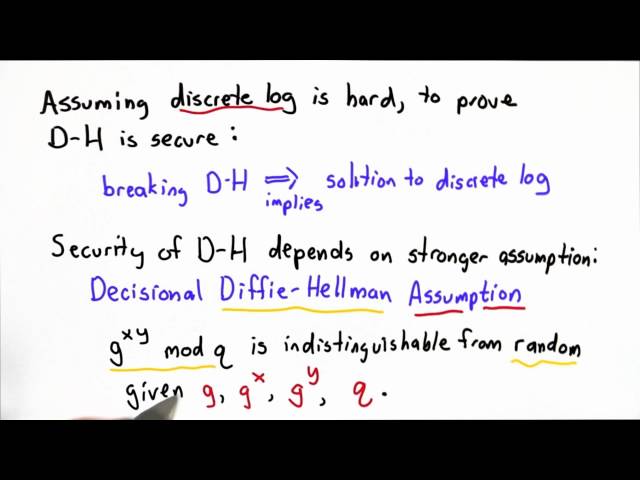 Assuming discrete log is hard, to prove
D-H is secure:
breaking D-H ⟹ solution to discrete log
implies
Security of D-H depends on stronger assumption:
Decisional Diffie-Hellman Assumption
g^xy mod q is indistinguishable from random
given g, g^x, g^y, q.